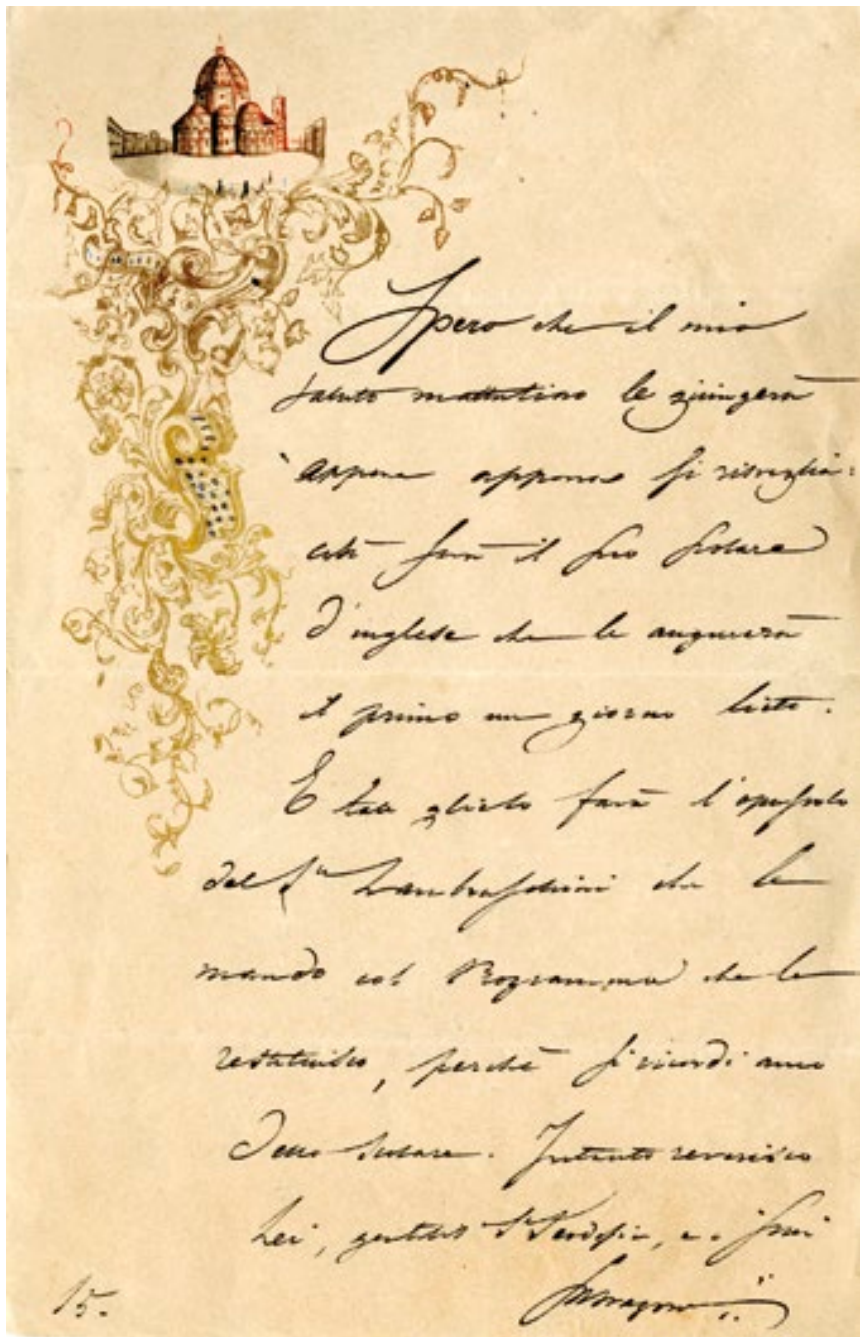 Spero che il mio
saluto mattutino le giungerà
appena si risveglia:
così sarà il suo scolare
d'inglese che le augurerà
il primo un giorno lieto.
E tale glielo farà l'opuscolo
del Sr Lambruschini che le
mando col Programma che le
restituisco, perchè si ricordi anco
dello scolare. Intanto reverisco
Lei, gentile Sra e i suoi
15.